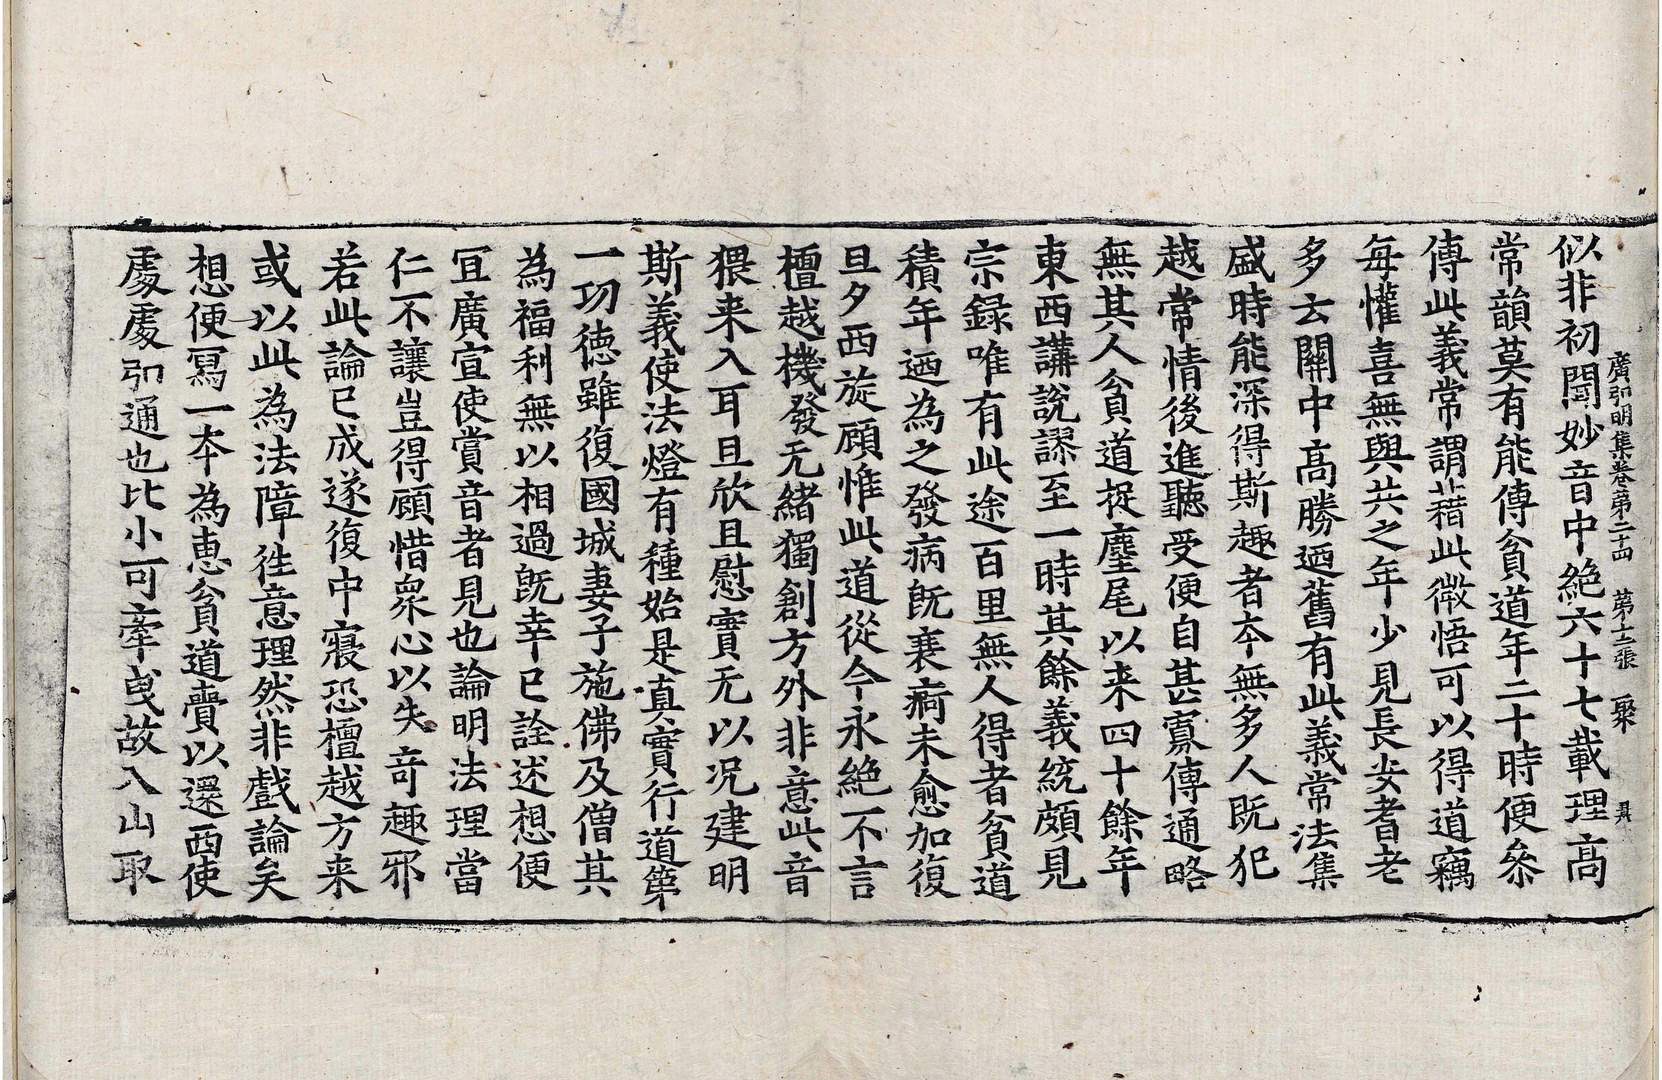 廣弘明集卷第二十四 第十二張 聚
似非初聞妙音中絶六十七載理高
常韻莫有能傳貧道年二十時便叅
傳此義常謂藉此微悟可以得道竊
每懽喜無與共之年少見長安耆老
多云關中高勝迺舊有此義常法集
盛時能深得斯趣者夲無多人既犯
越常情後進聽受便自甚寡傳通略
無其人貧道捉麈尾以来四十餘年
東西講說謬至一時其餘義統頗見
宗録唯有此途百里無人得者貧道
積年迺為之發病既衰痾未愈加復
旦夕西旋顧惟此道從今永絶不言
檀越機發无緒獨創方外非意此音
猥来入耳且欣且慰實无以况建明
斯義使法燈有種始是真實行道第
一㓛徳雖復國城妻子施佛及僧其
為福利無以相過既幸已詮述想便
冝廣宣使賞音者見也論明法理當
仁不讓豈得顧惜衆心以失竒趣邪
若此論已成遂復中寢恐檀越方来
或以此為法障徃意理然非戲論矣
想便寫一夲為惠貧道賷以還西使
處處弘通也比小可牽曵故入山取